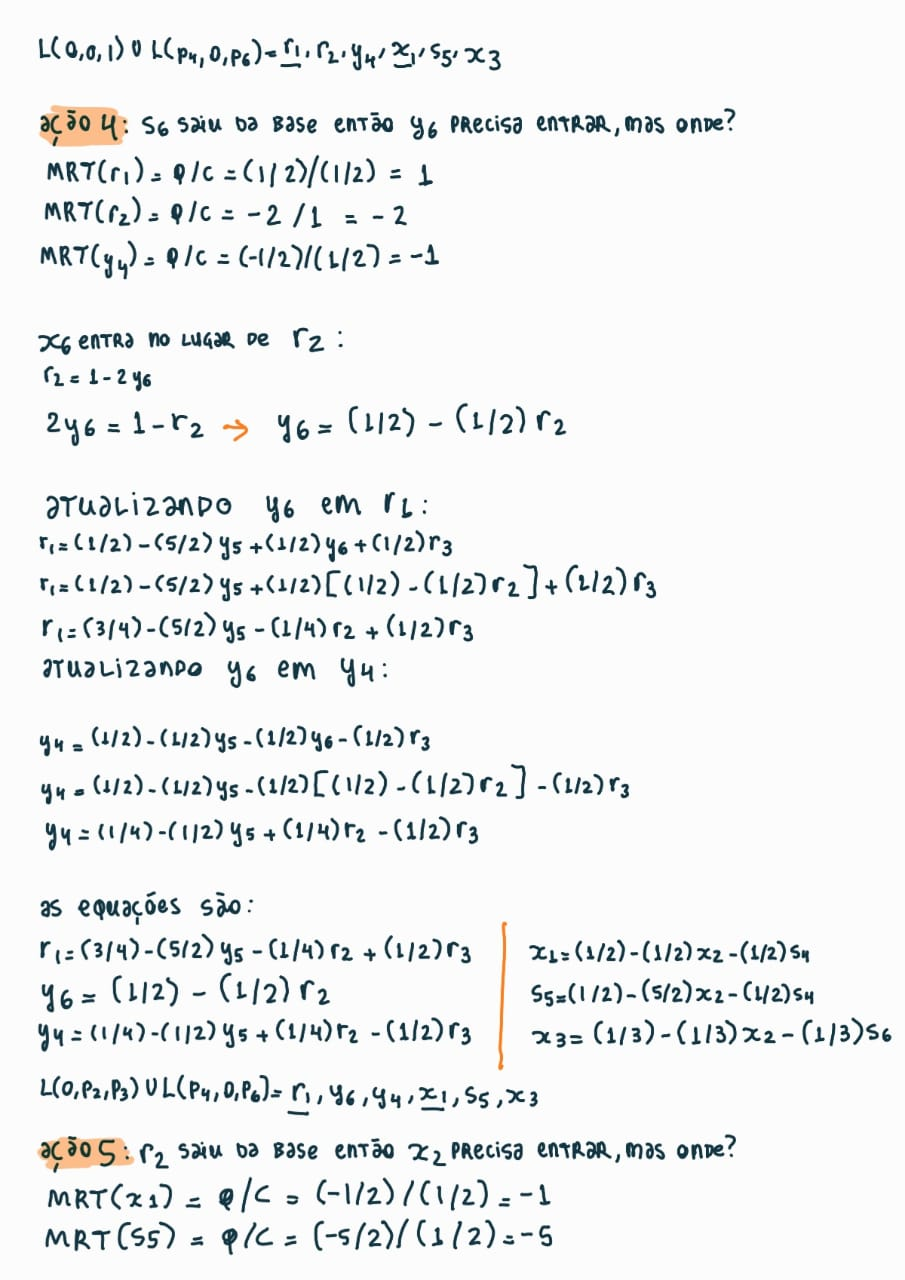 L(0,0,1) U L(p4,0,p6)= r1, r2, y4, x1, s5, x3
ação 4: s6 saiu da base então y6 precisa entrar, mas onde?
MRT(r1) = q/c = (1/2)/(1/2) = 1
MRT(r2) = q/c = -2/1 = -2
MRT(y4) = q/c = (-1/2)/(1/2) = -1
x6 entra no lugar de r2:
r2 = 1 - 2y6
2y6 = 1 - r2 → y6 = (1/2) - (1/2) r2
atualizando y6 em r1:
r1 = (1/2) - (5/2) y5 + (1/2) y6 + (1/2) r3
r1 = (1/2) - (5/2) y5 + (1/2) [(1/2) - (1/2) r2] + (1/2) r3
r1 = (3/4) - (5/2) y5 - (1/4) r2 + (1/2) r3
atualizando y6 em y4:
y4 = (1/2) - (1/2) y5 - (1/2) y6 - (1/2) r3
y4 = (1/2) - (1/2) y5 - (1/2) [(1/2) - (1/2) r2] - (1/2) r3
y4 = (1/4) - (1/2) y5 + (1/4) r2 - (1/2) r3
as equações são:
r1 = (3/4) - (5/2) y5 - (1/4) r2 + (1/2) r3
y6 = (1/2) - (1/2) r2
y4 = (1/4) - (1/2) y5 + (1/4) r2 - (1/2) r3
x1 = (1/2) - (1/2) x2 - (1/2) s4
s5 = (1/2) - (5/2) x2 - (1/2) s4
x3 = (1/3) - (1/3) x2 - (1/3) s6
L(0,p2,p3) U L(p4,0,p6) = r1, y6, y4, x1, s5, x3
ação 5: r2 saiu da base então x2 precisa entrar, mas onde?
MRT(x1) = q/c = (-1/2)/(1/2) = -1
MRT(s5) = q/c = (-5/2)/(1/2) = -5